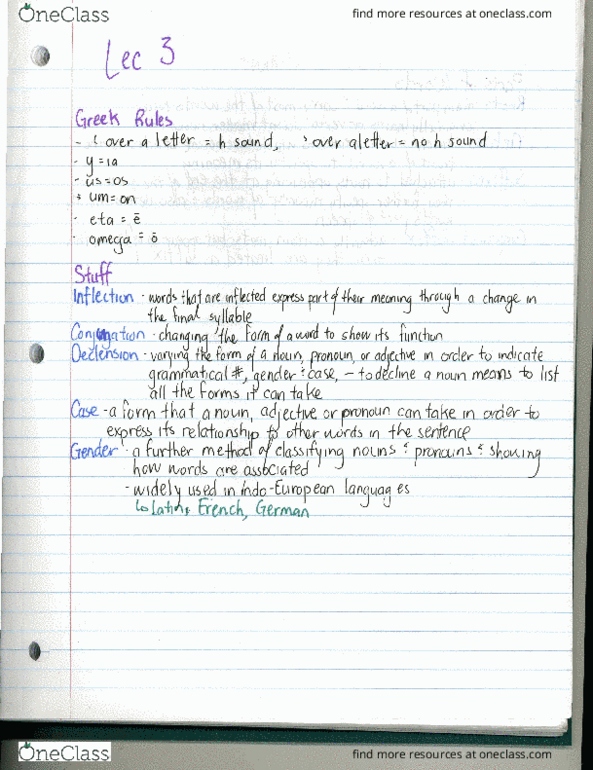 OneClass
find more resources at oneclass.com
Lec 3
Greek Rules
- ʿ over a letter = h sound, ʾ over a letter = no h sound
- y = ia
- us = os
- um = on
- eta = ē
- omega = ō
Stuff
Inflection - words that are inflected express part of their meaning through a change in
the final syllable
Conjugation - changing the form of a word to show its function
Declension - varying the form of a noun, pronoun, or adjective in order to indicate
grammatical #, gender & case, - to decline a noun means to list
all the forms it can take
Case - a form that a noun, adjective or pronoun can take in order to
express its relationship to other words in the sentence
Gender - a further method of classifying nouns & pronouns & showing
how words are associated
- widely used in indo-European languages
↳ Latin, French, German
OneClass
find more resources at oneclass.com